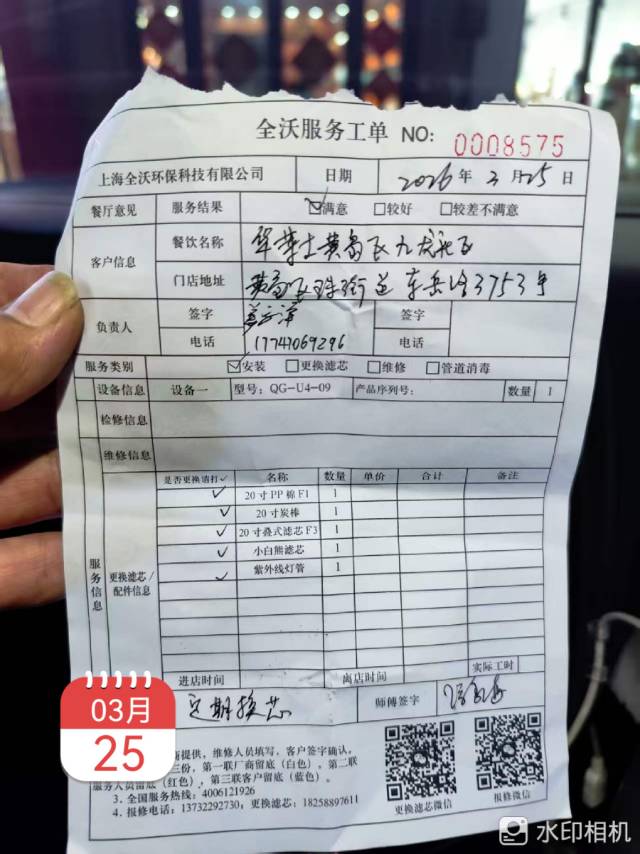 全沃服务工单 NO: 0008575
上海全沃环保科技有限公司 日期 2026年3月25日
餐厅意见 服务结果 ☑满意 □较好 □较差不满意
客户信息 餐饮名称 华莱士黄岛区九龙
门店地址 黄岛区珠街道东岳路3753号
负责人 签字 签字
电话 17741069296 电话
服务类别 ☑安装 □更换滤芯 □维修 □管道消毒
设备信息 设备一 型号:QG-U4-09 产品序列号: 数量 1
检修信息
维修信息
服务信息 更换滤芯/配件信息 是否更换请打✓ 名称 数量 单价 合计 备注
✓ 20寸PP棉F1 1
✓ 20寸炭棒 1
✓ 20寸叠式滤芯F3 1
✓ 小白熊滤芯 1
✓ 紫外线灯管 1
进店时间 离店时间 实际工时
定期换芯 师傅签字
商提供,维修人员填写,客户签字确认,
三份,第一联厂商留底(白色)。第二联
服务人员留底(红色),第三联客户留底(蓝色)。
3. 全国服务热线:4006121926
4. 报修电话:13732292730,更换滤芯:18258897611
更换滤芯微信 报修微信
03月
25
水印相机